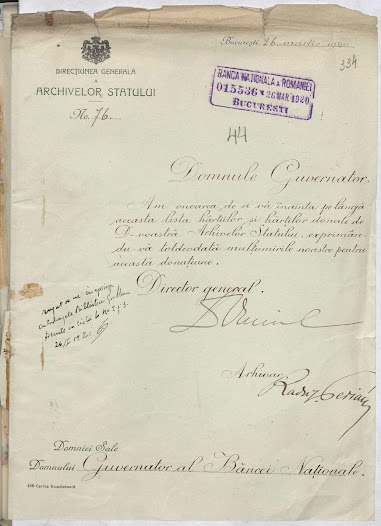 București, 26 martie 1920
334
DIRECȚIUNEA GENERALĂ
A
ARCHIVELOR STATULUI
No. 76.
BANCA NAȚIONALĂ A ROMÂNIEI
015536 * 26 MAR 1920
BUCUREȘTI
44
Domnule Guvernator.
Am onoarea de a vă înainta pe lângă
aceasta lista hârtiilor și hărților donate de
D-voastră Arhivelor Statului, exprimân-
du-vă totdeodată mulțumirile noastre pentru
aceasta donațiune.
Director general.
Arhivar,
Domniei Sale
Domnului Guvernator al Băncei Naționale.